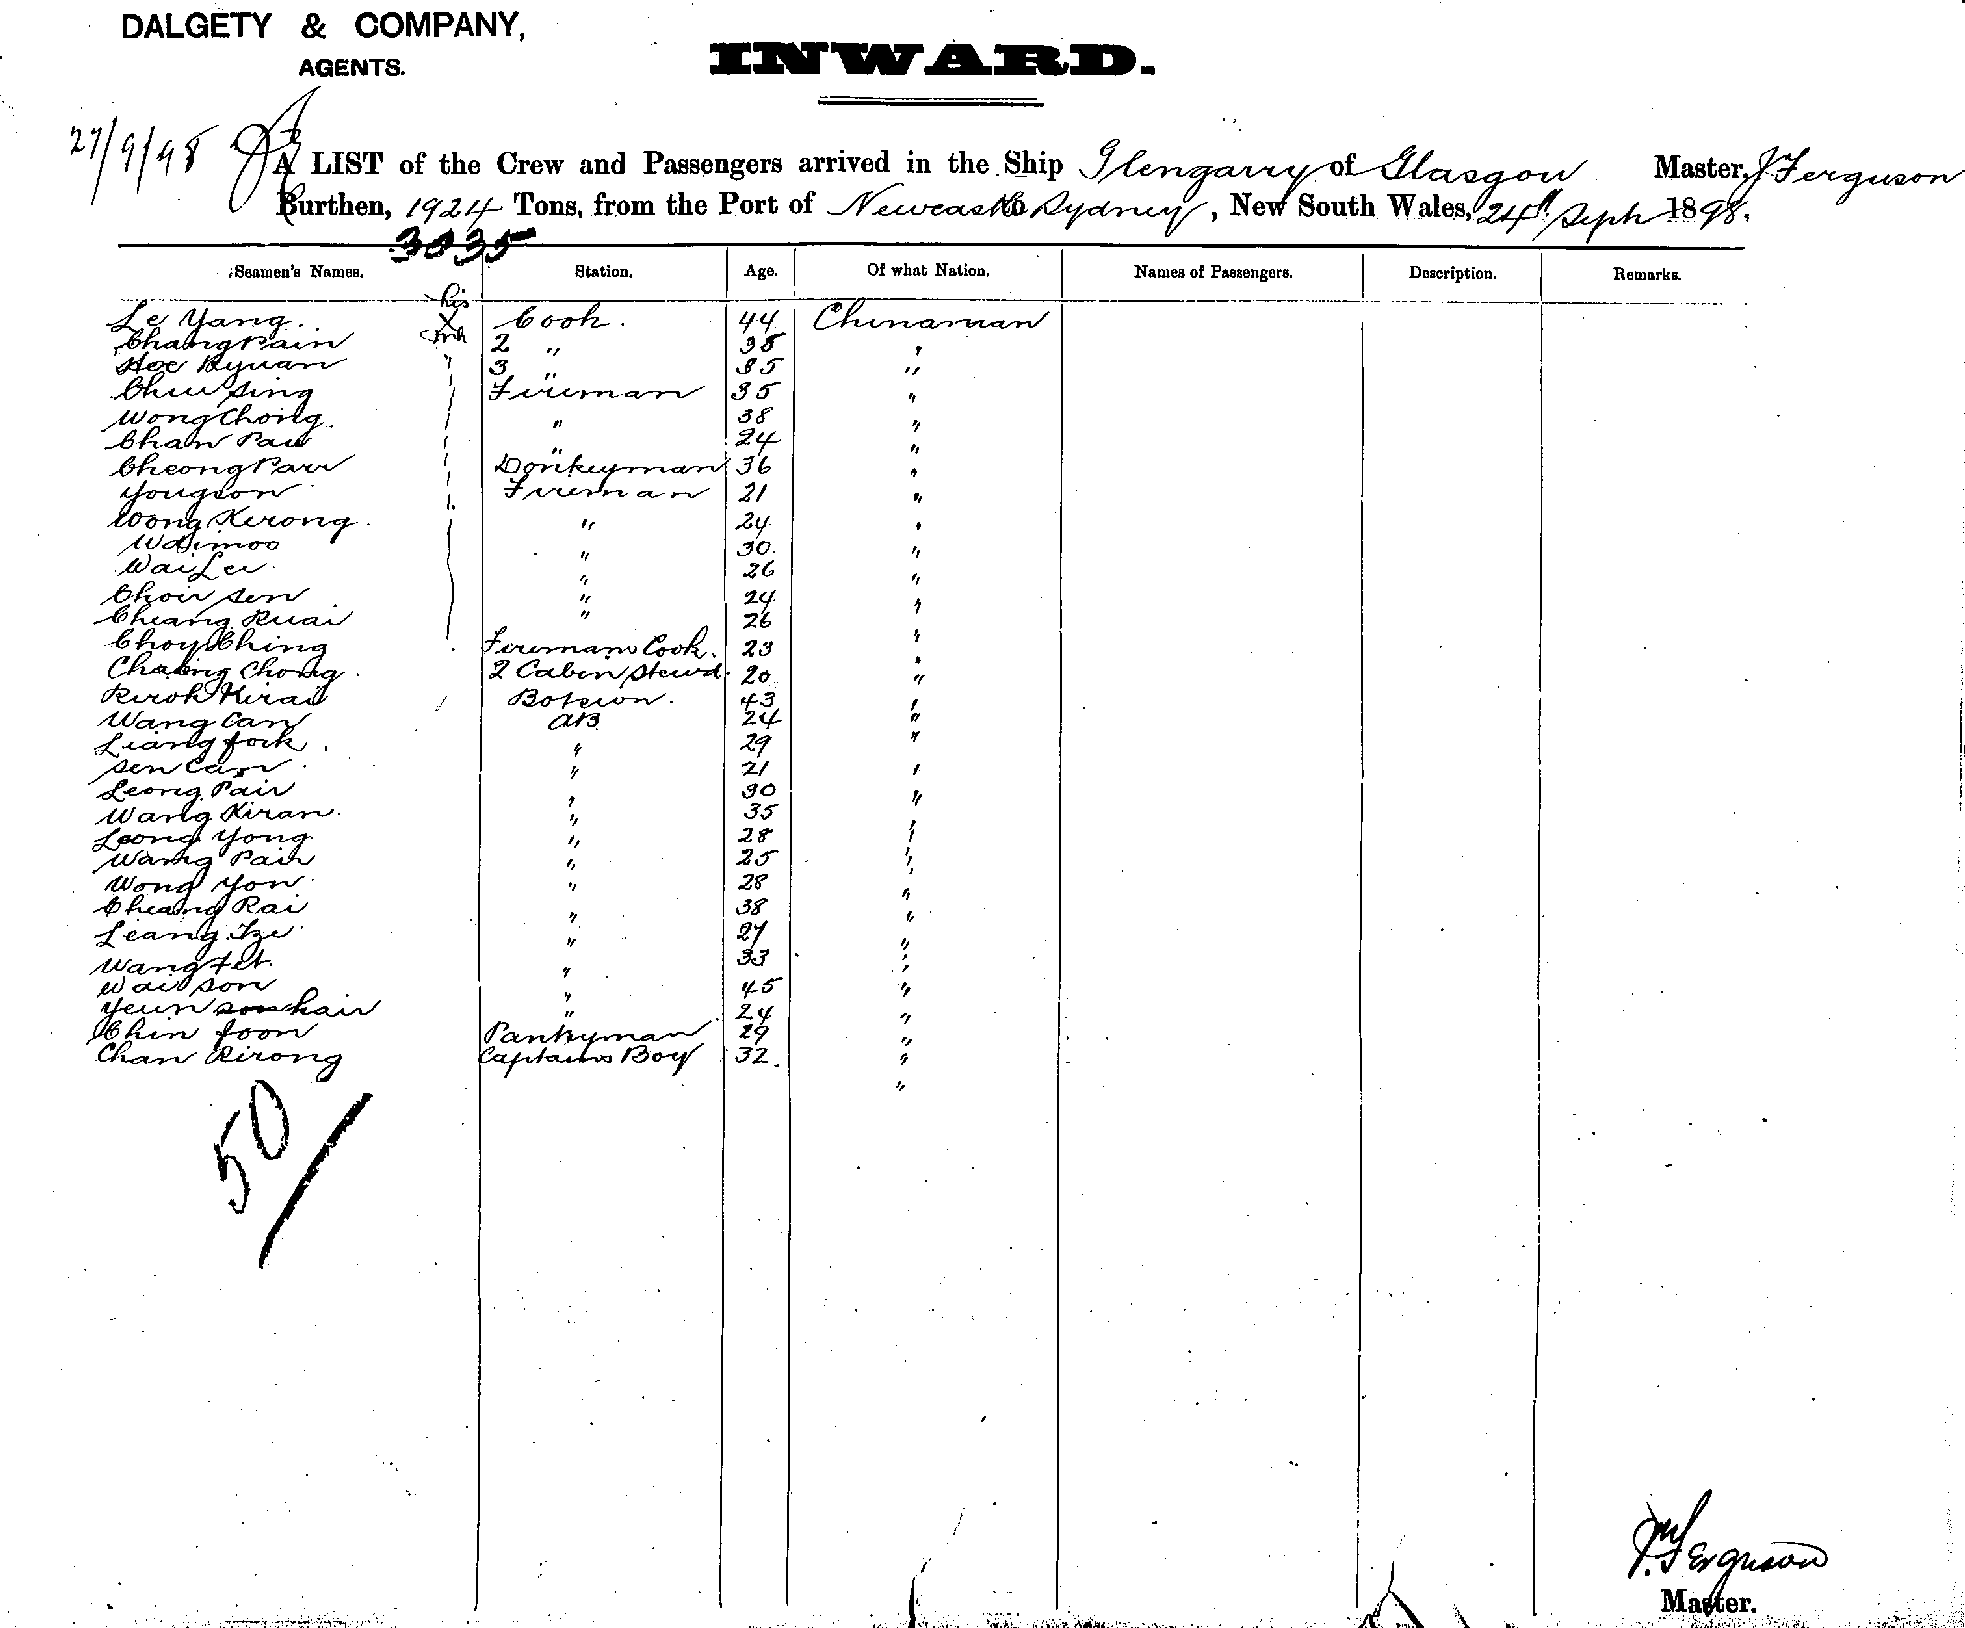 DALGETY & COMPANY,
AGENTS.
INWARD.
27/9/98
A LIST of the Crew and Passengers arrived in the Ship Glengarry of Glasgow Master, J Ferguson
Burthen, 1924 Tons, from the Port of Newcastle to Sydney, New South Wales, 24th Septr 1898.
3035
Seamen's Names. Station. Age. Of what Nation. Names of Passengers. Description. Remarks.
his
Le Yang. X Cook. 44 Chinaman
Chang Pain mk 2 " 38 "
Hoe Kyuan 3 " 35 "
Chui Sing Fireman 35 "
Wong Chong. " 38 "
Chan Pau " 24 "
Cheong Parr Donkeyman 36 "
Yougson Fireman 21 "
Wong Kerong. " 24 "
Waimoo " 30. "
Wai Lei " 26 "
Choir Sen " 24 "
Cheang Kuai " 26 "
Choy Ching Firemans Cook. 23 "
Chaing Chong. 2 Cabin Stewd. 20 "
Kiroh Kirau Botswn. 43 "
Wang Can AB 24 "
Liang fook. " 29 "
Sen Cam " 21 "
Leong Pair " 30 "
Wang Kiran. " 35 "
Leong Yong " 28 "
Wang Pair " 25 "
Wong Yon " 28 "
Cheang Kai " 38 "
Leang Tze " 27 "
Wang Fet. " 33 "
Wai Son " 45 "
Yeun son hair " 24 "
Chin foon Pantryman 29 "
Chan Kirong Captains Boy 32. "
50
J. Ferguson
Master.